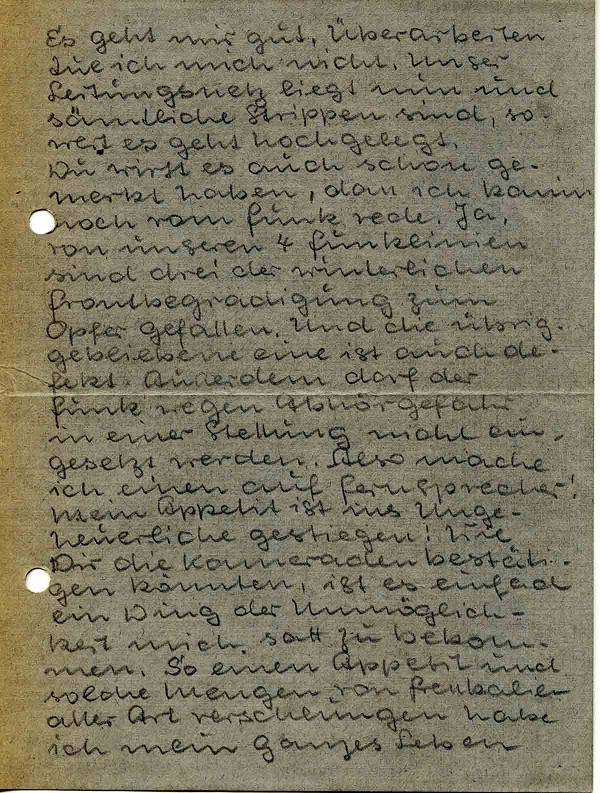 Es geht mir gut. Überarbeiten
tue ich mich nicht. Unser
Leitungsnetz liegt nun und
sämtliche Strippen sind, so-
weit es geht hochgelegt.
Du wirst es auch schon ge-
merkt haben, dass ich kaum
noch vom Funk rede. Ja,
von unseren 4 Funklinien
sind drei der winterlichen
Frontbegradigung zum
Opfer gefallen. Und die übrig-
gebliebene eine ist auch de-
fekt. Außerdem darf der
Funk wegen Abhörgefahr
in einer Stellung nicht ein-
gesetzt werden. Also mache
ich einen auf Fernsprecher!
Mein Appetit ist ins Unge-
heuerliche gestiegen! Wie
Dir die Kameraden bestäti-
gen könnten, ist es einfach
ein Ding der Unmöglich-
keit mich satt zu bekom-
men. So einen Appetit und
solche Mengen von
aller Art verschlingen habe
ich mein ganzes Leben